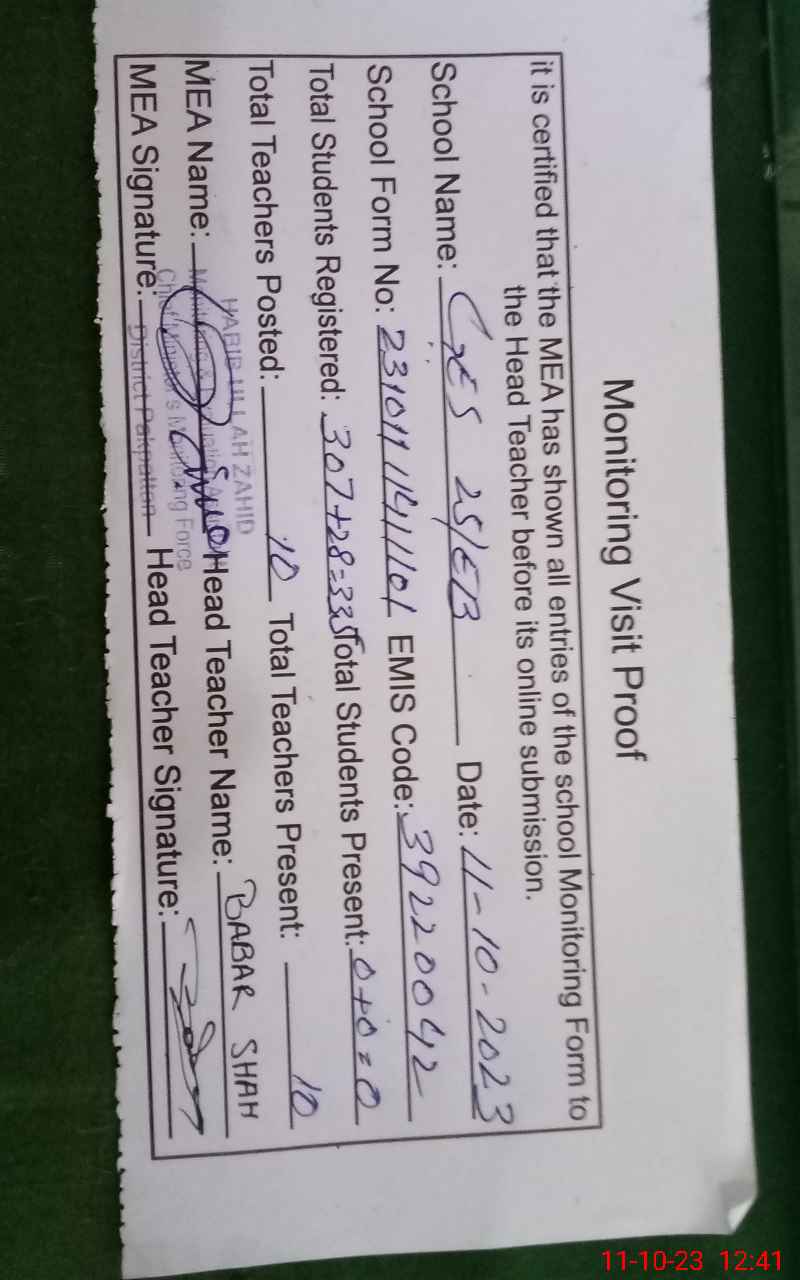 Monitoring Visit Proof
it is certified that the MEA has shown all entries of the school Monitoring Form to
the Head Teacher before its online submission.
School Name: GES 25/EB Date: 11-10-2023
School Form No: EMIS Code: 39220042
Total Students Registered: 307+28=335 Total Students Present: 0+0=0
Total Teachers Posted: 10 Total Teachers Present: 10
HABIB ULLAH ZAHID
MEA Name: Head Teacher Name: BABAR SHAH
Monitoring & Evaluation
Chief Minister's Monitoring Force
MEA Signature: Head Teacher Signature:
District Pakpattan
11-10-23 12:41